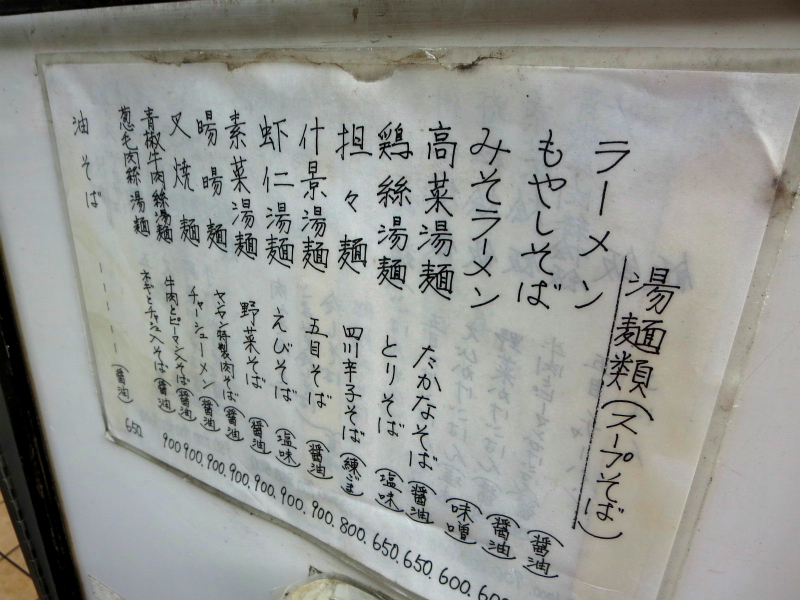 湯麺類(スープそば)
ラーメン (醤油)
もやしそば (醤油) 600
みそラーメン (味噌) 600.
高菜湯麺 たかなそば (醤油) 650.
鶏絲湯麺 とりそば (塩味) 650.
担々麺 四川辛子そば (練ごま) 800.
什景湯麺 五目そば (醤油) 900.
虾仁湯麺 えびそば (塩味) 900.
素菜湯麺 野菜そば (醤油) 900.
暘暘麺 ヤンヤン特製肉そば (醤油) 900.
叉焼麺 チャーシューメン (醤油) 900.
青椒牛肉絲湯麺 牛肉とピーマン入そば (醤油) 900.
葱毛肉絲湯麺 ネギとチャーシュー入そば (醤油) 900
油そば (醤油) 650.